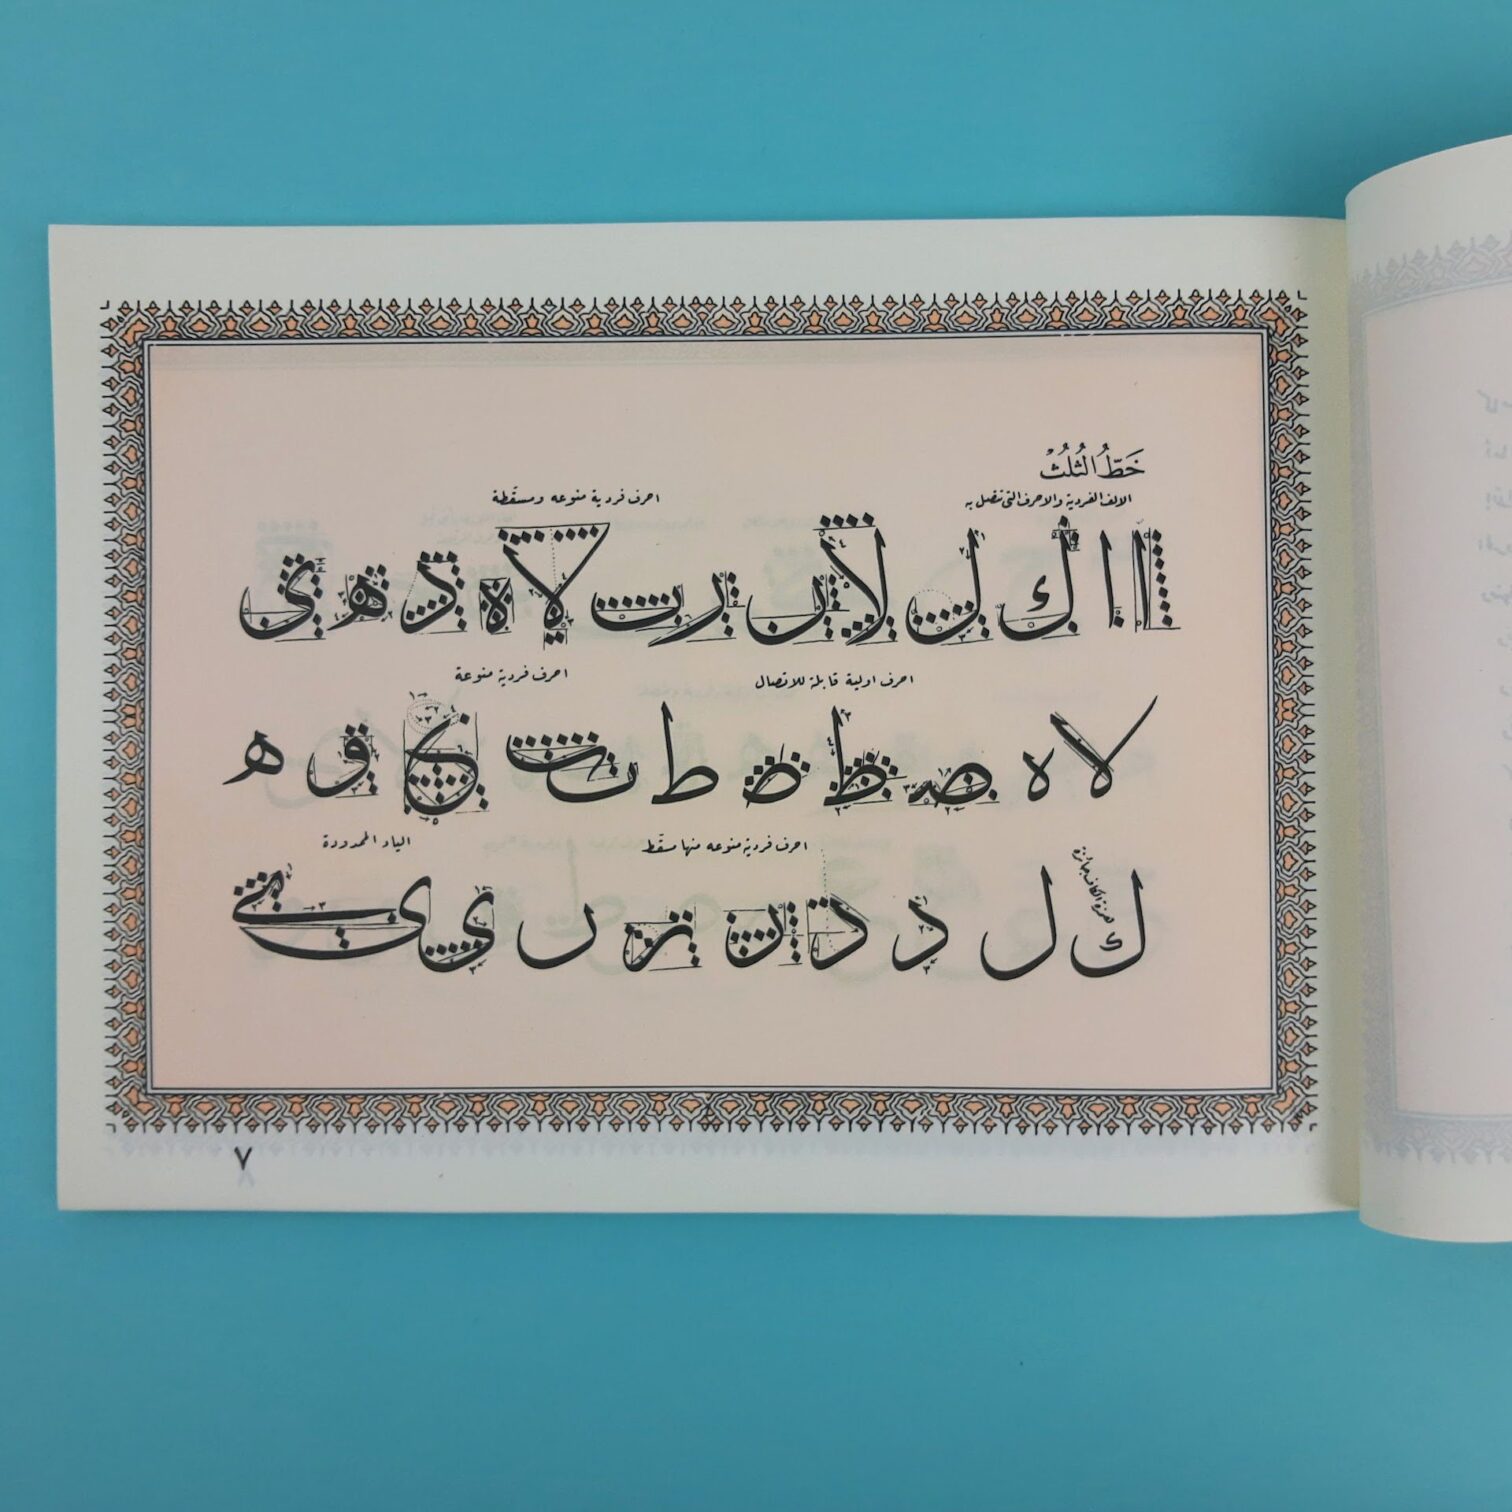 خَطُّ الثُّلُثْ
الالف الفردية والاحرف التى تتصل به احرف فردية منوعه ومسقطة
ا ا ا ك ل لا ن ر ب لا ه د ه ي
احرف اولية قابلة للاتصال احرف فردية منوعة
لا ه ص ط ط ط ب ع و ه
احرف فردية منوعه منها مسقط الياء الممدودة
ك همزة الكاف جائزة ل د د ن ر ر ي ي
٧